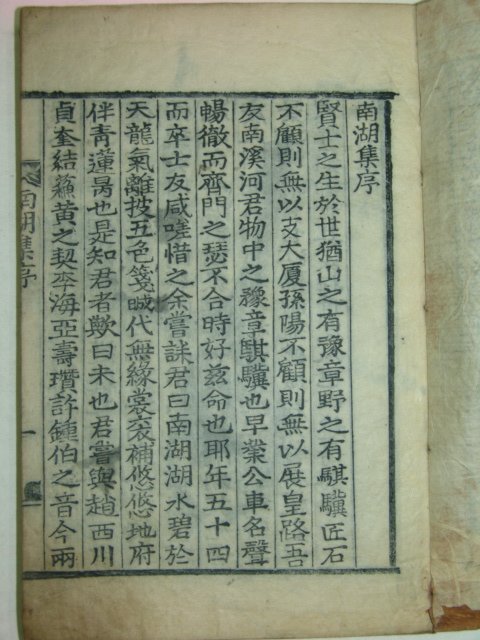 南湖集序
賢士之生於世猶山之有豫章野之有騏驥匠石
不顧則無以支大厦孫陽不顧則無以展皇路吾
友南溪河君物中之豫章騏驥也早業公車名聲
暢徹而齊門之瑟不合時好玆命也耶年五十四
而卒士友咸嗟惜之余嘗誄君曰南湖湖水碧於
天龍氣離披五色箋晠代無緣裳袞補悠悠地府
伴青蓮曷也是知君者歟曰未也君嘗與趙西川
貞奎結蘇黃之契李海亞壽瓚許鍾伯之音今兩
南湖集序
一